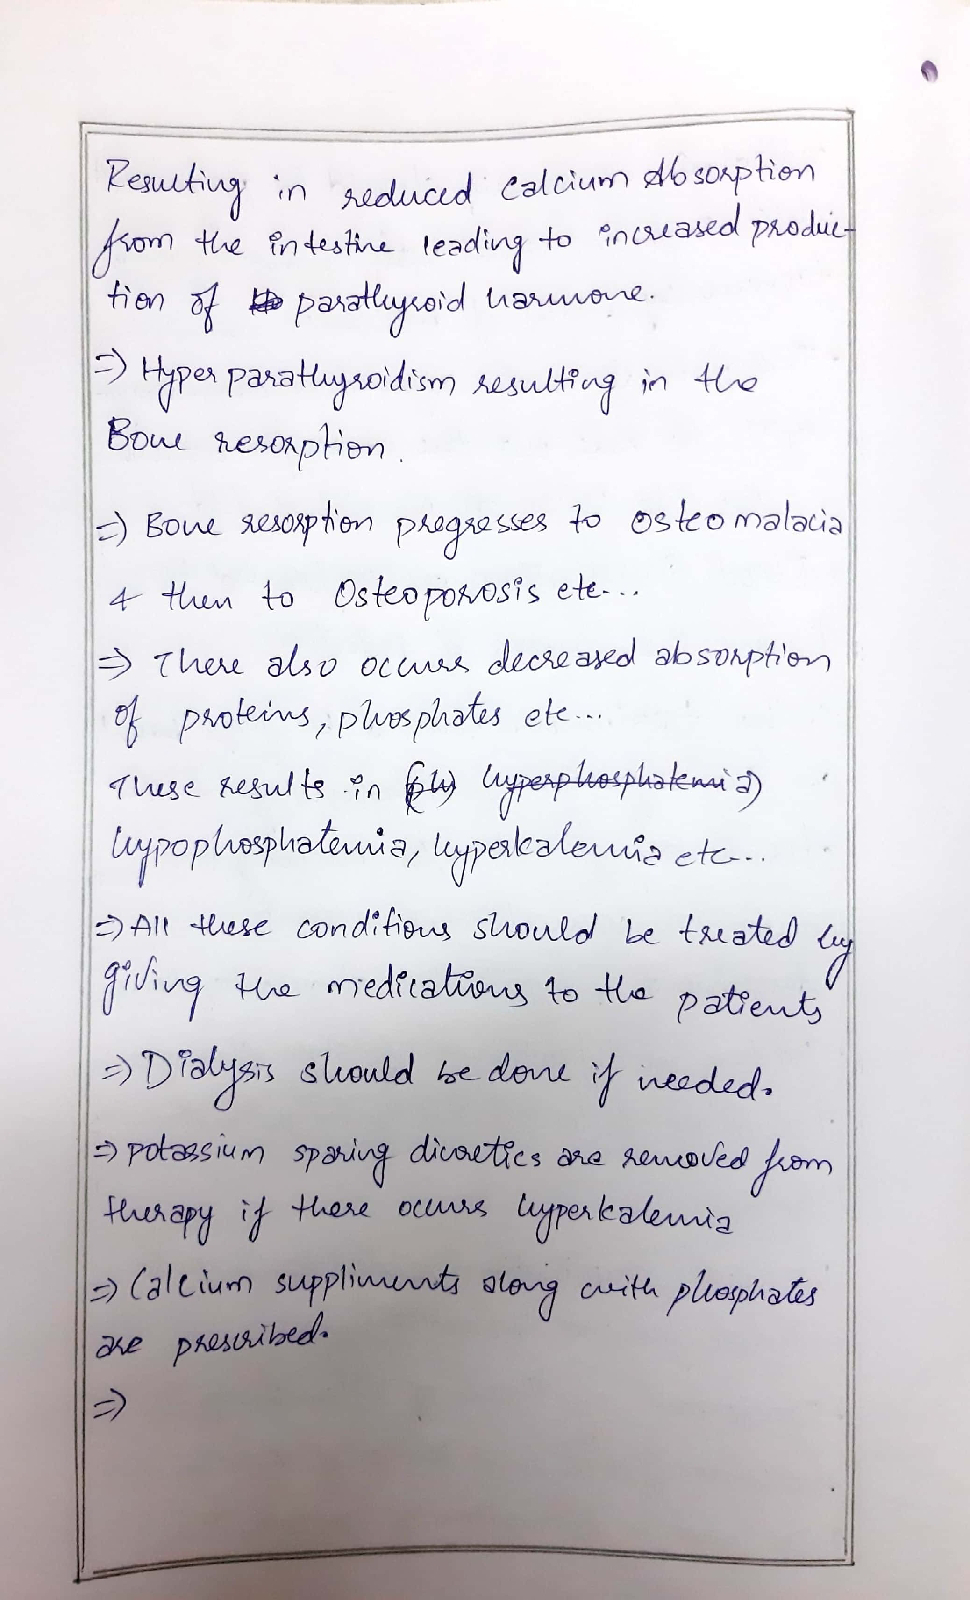 Resulting in reduced Calcium Absorption
from the intestine leading to increased produc-
tion of parathyroid harmone.
=) Hyper parathyroidism resulting in the
Bone resorption.
=) Bone resorption progresses to osteomalacia
& then to Osteoporosis etc...
=) There also occurs decreased absorption
of proteins, phosphates etc...
These results in hyperphosphatemia)
hypophosphatemia, hyperkalemia etc...
=) All these conditions should be treated by
giving the medications to the patients
=) Dialysis should be done if needed.
=) potassium sparing diuretics are removed from
therapy if there occurs hyperkalemia
=) Calcium suppliments along with phosphates
are prescribed.
=)